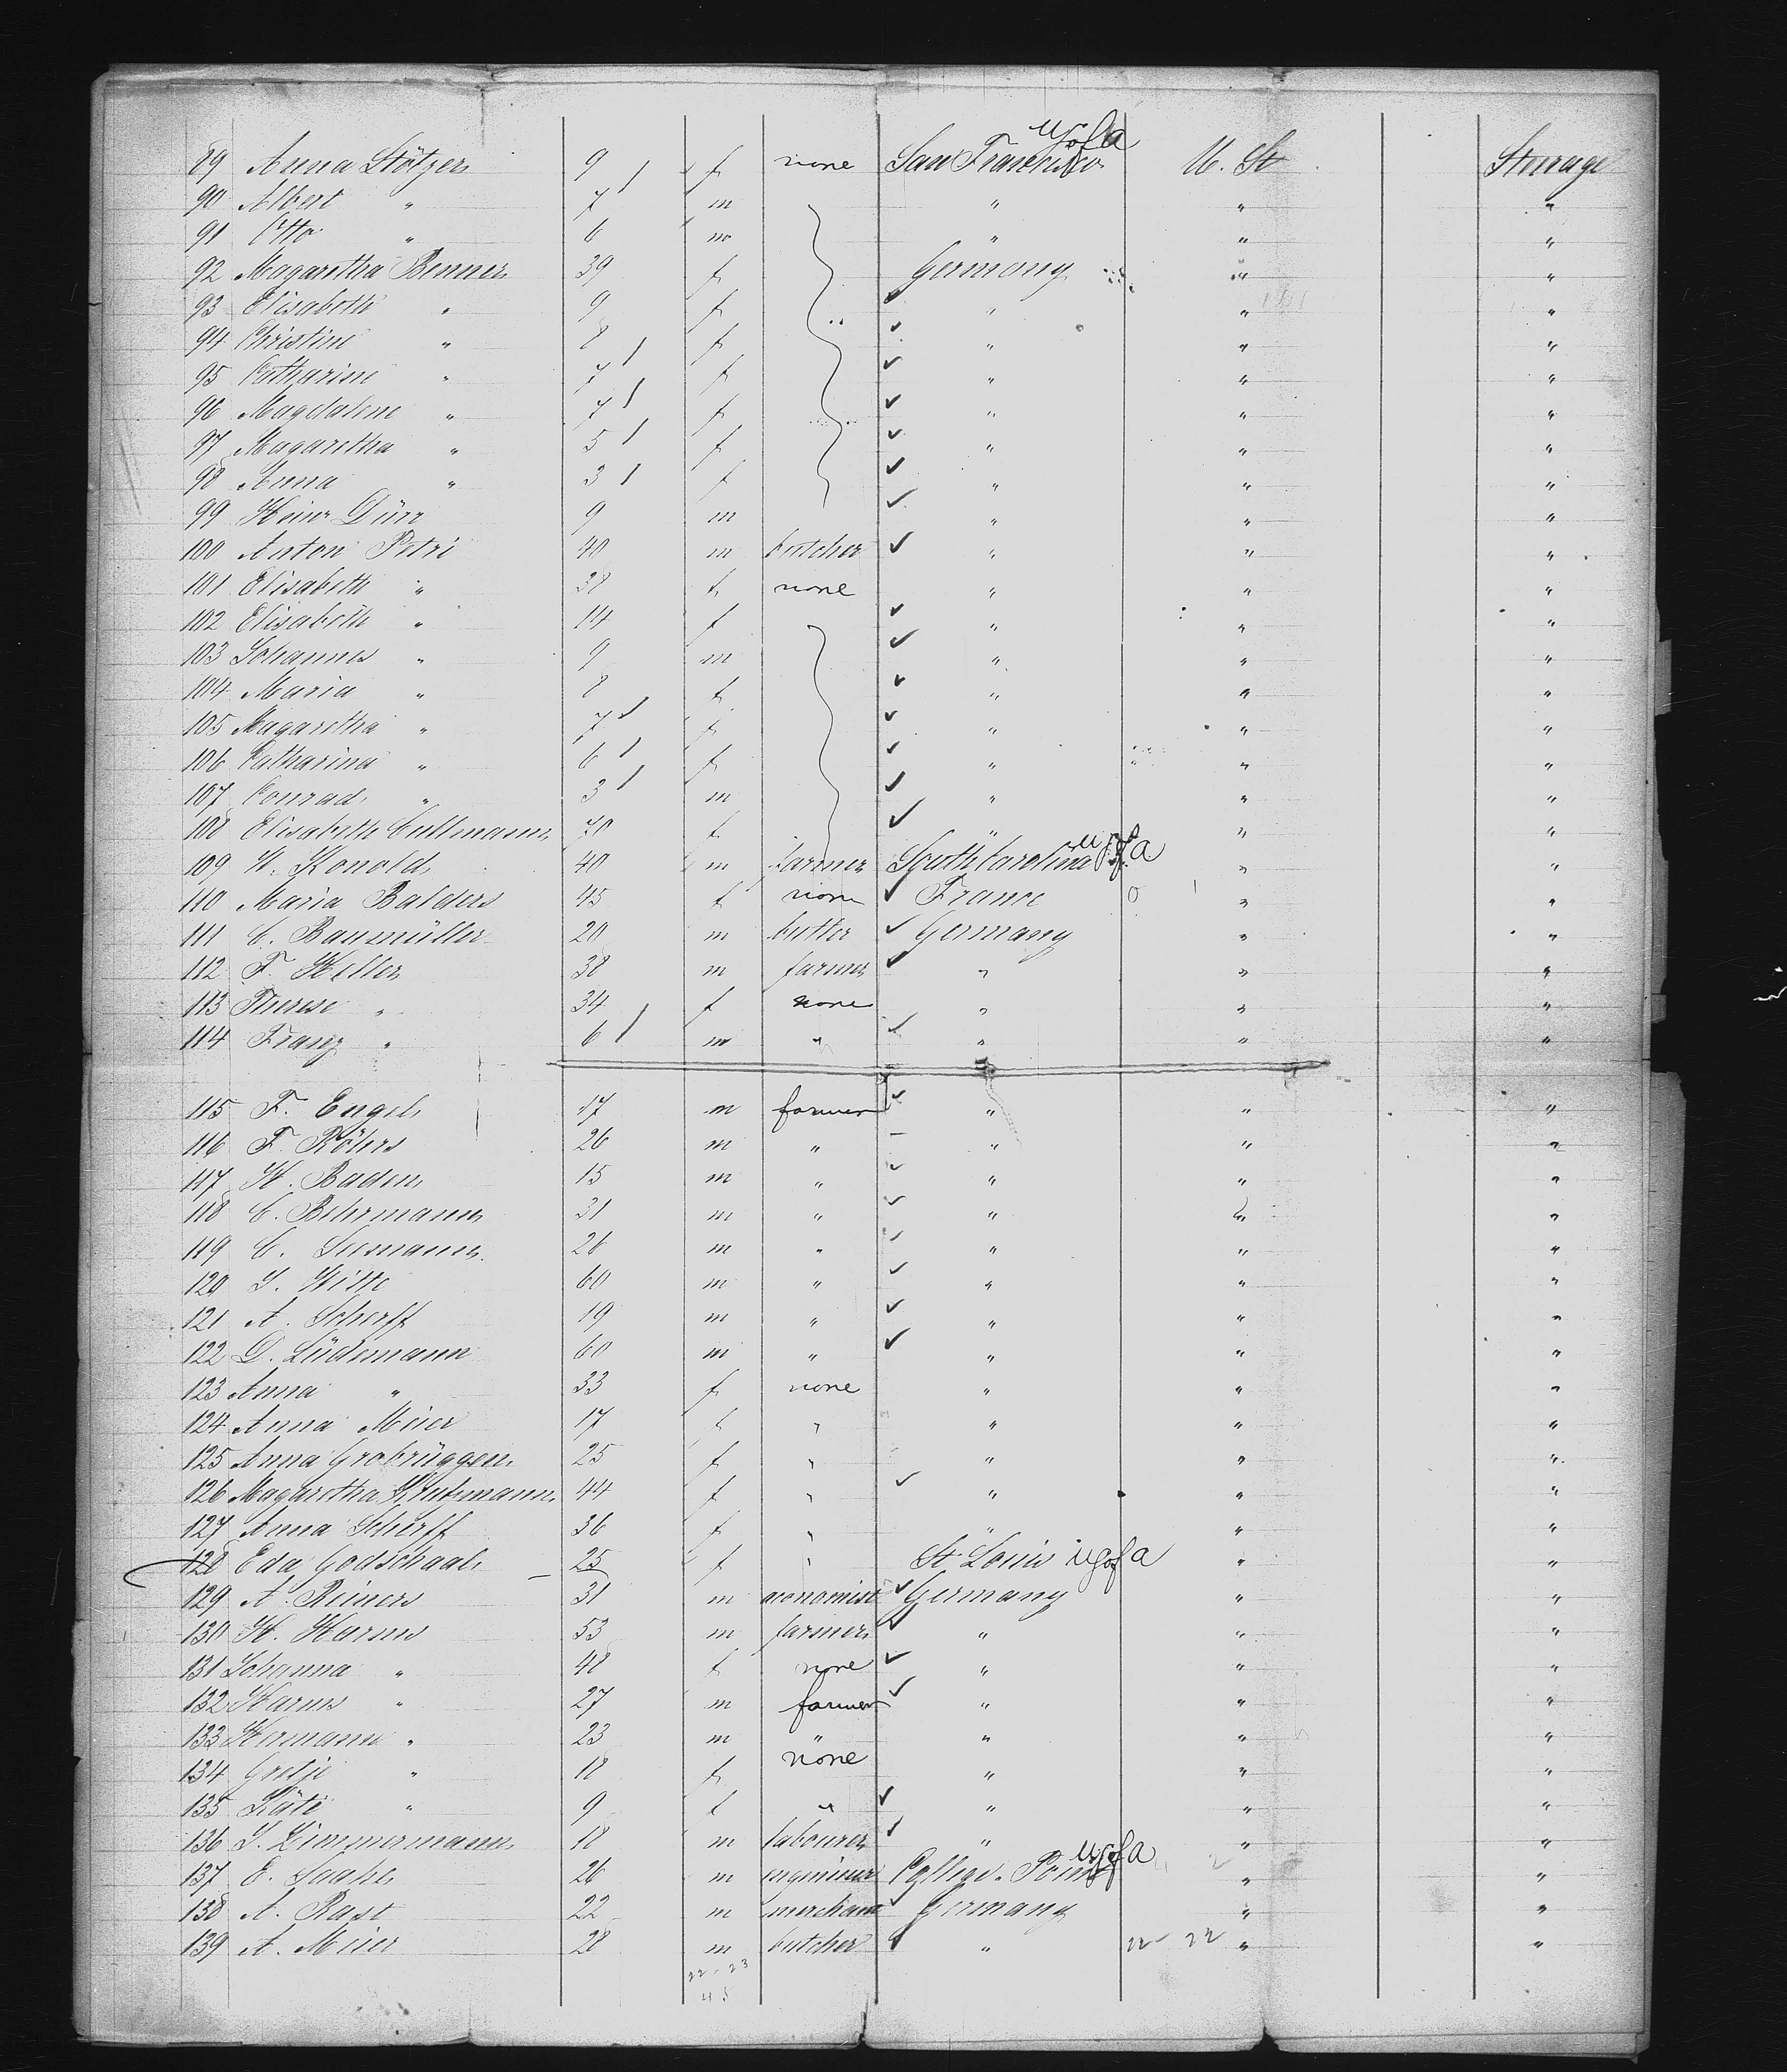 89 Anna Stötzer 9 f none San Francisco U. S. of A U. St Sterage
90 Albert " 7 m " " "
91 Otto " 6 m " " "
92 Magaretha Benner 39 f Germany " "
93 Elisabeth " 9 f " " "
94 Christine " 8 f " " "
95 Catharine " 7 f " " "
96 Magdalene " 7 f " " "
97 Magaretha " 5 f " " "
98 Anna " 3 f " " "
99 Heinr Dürr 9 m " " "
100 Anton Petri 40 m butcher " " "
101 Elisabeth " 38 f none " " "
102 Elisabeth " 14 f " " "
103 Johannes " 9 m " " "
104 Maria " 8 f " " "
105 Magaretha " 7 f " " "
106 Catharina " 6 f " " "
107 Conrad " 3 m " " "
108 Elisabeth Cullmann 70 f " " "
109 W. Konold 40 m farmer South Carolina U S of A " "
110 Maria Balders 45 f none France " "
111 C. Baumüller 20 m Germany " "
112 F. Heller 38 m farmer " " "
113 Therese " 34 f none " " "
114 Franz " 6 m " " " "
115 F. Engel 17 m farmer " " "
116 F. Röhrs 26 m " " " "
117 H. Baden 15 m " " " "
118 C. Behrmann 31 m " " " "
119 C. Seemann 26 m " " " "
120 J. Witte 60 m " " " "
121 A. Scherff 19 m " " " "
122 D. Lüdemann 60 m " " " "
123 Anna " 33 f none " " "
124 Anna Meier 17 f " " " "
125 Anna Grobrüggen 25 f " " " "
126 Magaretha 44 f " " " "
127 Anna Scherff 36 f " " " "
128 Eda Godschaal 25 f " St. Louis U S of A " "
129 A. Reiners 31 m oeconomist Germany " "
130 H. Harms 53 m farmer " " "
131 Johanna " 48 f none " " "
132 Harms " 27 m farmer " " "
133 Hermann " 23 m " " " "
134 Gretje " 18 f none " " "
135 Käte " 9 f " " " "
136 J. Zimmermann 18 m labourer " " "
137 E. 26 m engineer College Point U S of A " "
138 A. Rast 22 m merchant Germany " "
139 A. Meier 28 m butcher " 22 - 22 " "
22 - 23
45